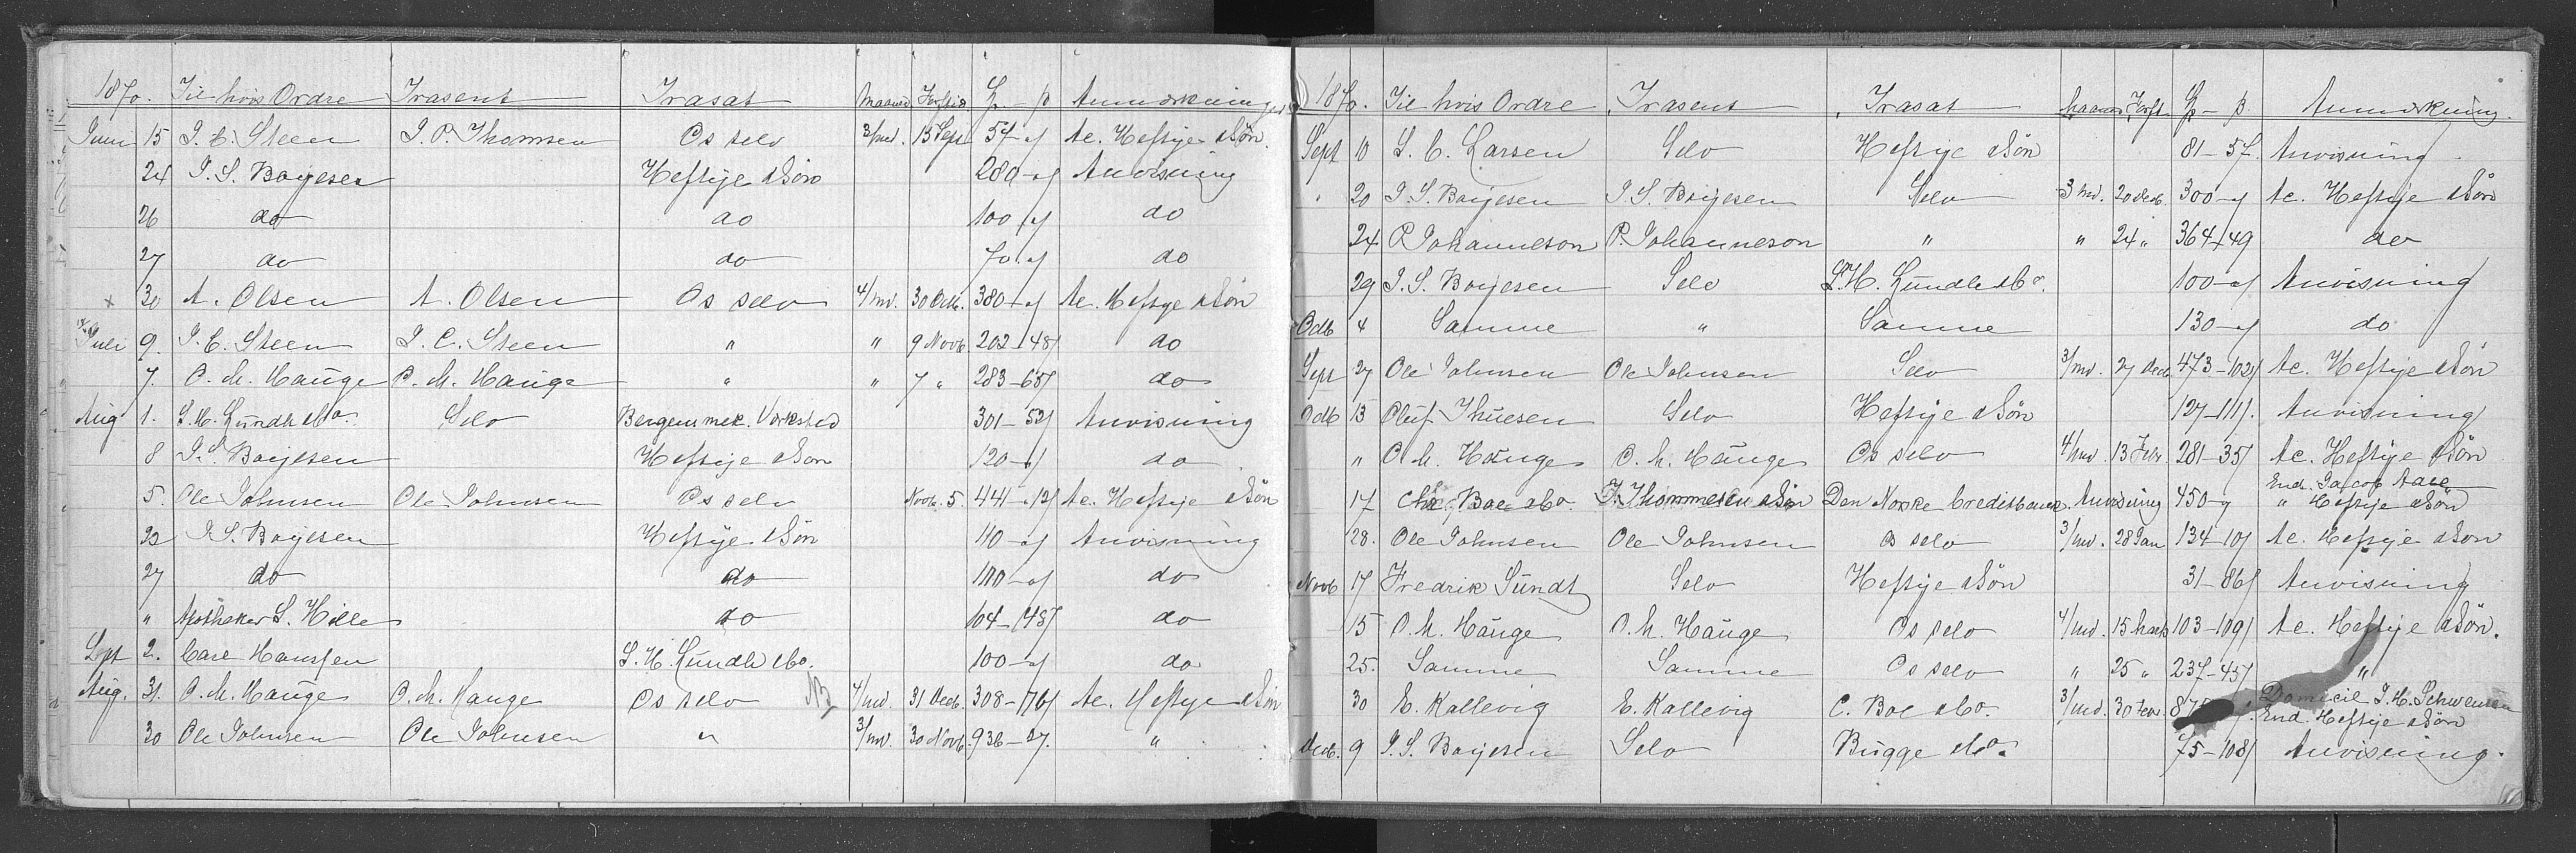 1870. Til hvis Ordre Trasent Trasat Maaned Forftid. £ – ß Anmærkninger
Juni 15 J. C. Steen J. P. Thomsen Os selv 3/md. 15 Sept 54 – " Ac. Heftye & Søn.
24 J. S. Boyesen Heftye & Søn 280 – " Anvisning
26 do do 100 – " do
27 do do 70 – " do
× 30 A. Olsen A. Olsen Os selv 4/md. 30 Octb. 380 – " Ac. Heftye & Søn
Juli 9. J. C. Steen J. C. Steen " " 9 Novb. 202 – 48/ do
7. O. M. Hauge O. M. Hauge " " 7 " 283 – 65/ do
Aug 1. S. H. Lundh & Co. Selv Bergens mek. Værksted 301 – 52/ Anvisning
8 J. S. Boyesen Heftye & Søn 120 – " do
5. Ole Johnsen Ole Johnsen Os selv Novb. 5. 441 – 12/ Ac. Heftye & Søn
22 J. S. Boyesen Heftye & Søn 110 – " Anvisning
27 do do 110 – " do
" Apotheker S. Hille do 104 – 45/ do
Spt 2. Carl Hanssen S. H. Lundh & Co. 100 – " do
Aug. 31. O. M. Hauge O. M. Hauge Os selv NB 4/md. 31 Decb. 308 – 76/ Ac. Heftye & Søn
30 Ole Johnsen Ole Johnsen " 3/md. 30 Novb. 936 – 27. "
1870. Til hvis Ordre Trasent Trasat Maaned Forft. £ – ß. Anmærkning.
Sept 10 S. C. Larsen Selv Heftye & Søn 81 – 57. Anvisning
" 20 J. S. Boyesen J. S. Boyesen Selv 3 md. 20 Decb. 300 – " Ac. Heftye & Søn
24 P. Johanneson P. Johanneson " " 24 " 364 – 49 do
29 J. S. Boyesen Selv S. H. Lundh & Co. 100 – " Anvisning
Octb 4 Samme " Samme 130 – " do
Sept 27 Ole Johnsen Ole Johnsen Selv 3/md. 27 Decb. 473 – 102/ Ac. Heftye & Søn
Octb 13 Oluf Thuesen Selv Heftye & Søn 127 – 111/. Anvisning
" O. M. Hauge O. M. Hauge Os selv 4/md 13 Febr 281 – 35/ Ac. Heftye & Søn
End. Jacob Aall
17 Chr. Boe & Co. J. Thommesen & Søn Den Norske Creditbank. Anvisning 450 – " " Heftye & Søn
28. Ole Johnsen Ole Johnsen Os selv 3/md. 28 Jan 134 – 10/ Ac. Heftye & Søn
Novb 17 Fredrik Sundt Selv Heftye & Søn 31 – 86/ Anvisning
15 O. M. Hauge O. M. Hauge Os selv 4/md. 15 Marts 103 – 109/ Ac. Heftye & Søn.
25. Samme Samme Os selv " 25 " 237 – 45/ "
Domicil J. H. Schwensen
30 E. Kallevig E. Kallevig C. Boe & Co. 3/md. 30 Febr. End. Heftye & Søn
Decb. 9 J. S. Boyesen Selv Bugge & Co. 75 – 108/ Anvisning.